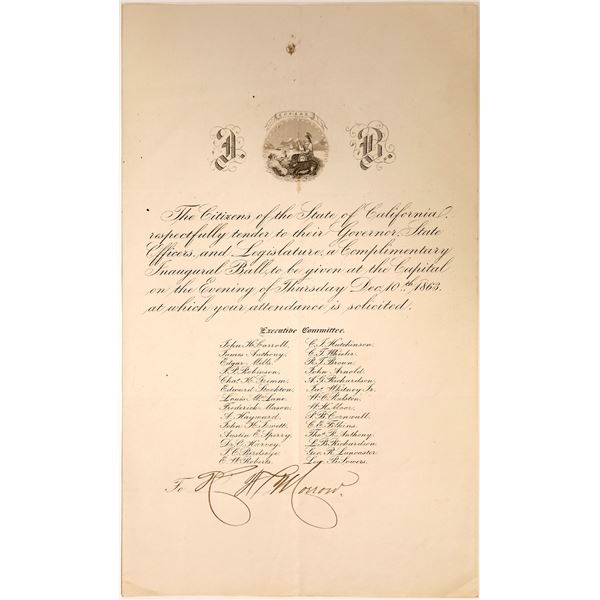 I. EUREKA B.
The Citizens of the State of California,
respectfully tender to their Governor, State
Officers, and Legislature, a Complimentary
Inaugural Ball, to be given at the Capital
on the Evening of Thursday Dec. 10th 1863.
at which your attendance is solicited.
Executive Committee.
John H. Carroll, C. I. Hutchinson,
James Anthony, C. T. Wheeler,
Edgar Mills, R. T. Brown,
J. P. Robinson, John Arnold,
Chas. K. A. G. Richardson,
Edward Stockton, Jas. Whitney Jr.
Louis McLane, W. C. Ralston,
Frederick Mason, W. H.
A. Hayward, P. B. Cornwall,
John H. Jewett, C. E.
Austin E. Sperry, Thos. R. Anthony,
D. C. Harvey, L. B. Richardson,
T. C. Birdseye, Geo. R. Lancaster,
E. W. Roberts, B. Sowers.
To R Morrow.